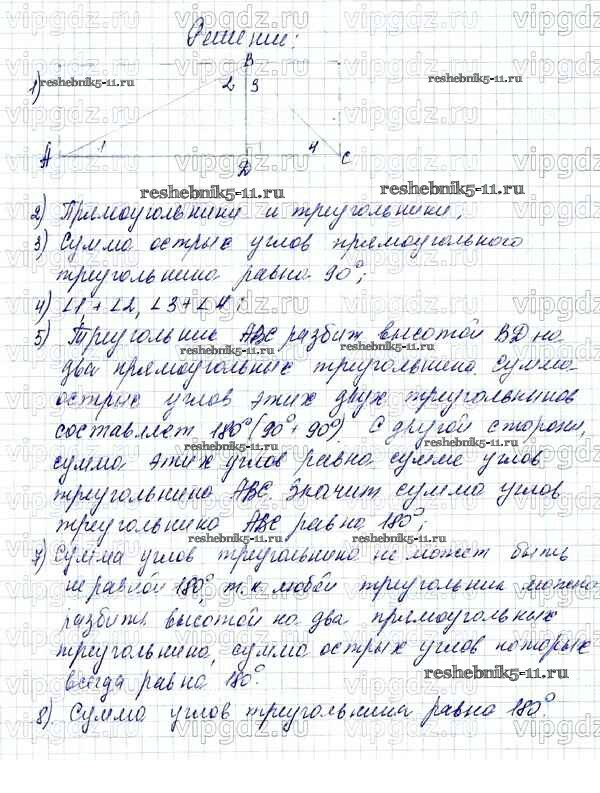 Решение:
1)
B
2 3
A 1 D 4 C
2) Прямоугольники и треугольники;
3) Сумма острых углов прямоугольного
треугольника равна 90°;
4) ∠1 + ∠2, ∠3 + ∠4;
5) Треугольник ABC разбит высотой BD на
два прямоугольних треугольника. Сумма
острых углов этих двух треугольников
составляет 180° (90° + 90°). С другой стороны,
сумма этих углов равна сумме углов
треугольника ABC. Значит сумма углов
треугольника ABC равна 180°;
7) Сумма углов треугольника не может быть
не равной 180°, т.к любой треугольник можно
разбить высотой на два прямоугольных
треугольника, сумма острых углов которых
всегда равна 180°.
8) Сумма углов треугольника равна 180°.
reshebnik5-11.ru
vipgdz.ru